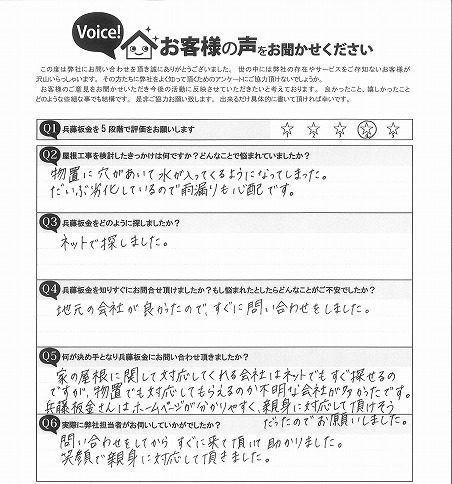 Voice!
お客様の声をお聞かせください
この度は弊社にお問い合わせを頂き誠にありがとうございました。 世の中には弊社の存在やサービスをご存知ないお客様が
沢山いらっしゃいます。 その方たちに弊社をよく知って頂くためのアンケートにご協力頂けないでしょうか。
お客様のご意見をお聞かせいただき今後の活動に反映させていただきたいと考えております。 良かったこと、嬉しかったこと
どのような些細な事でも結構です。 是非ご協力お願い致します。 出来るだけ具体的に書いて頂ければ幸いです。
Q1 兵藤板金を5段階で評価をお願いします
Q2 屋根工事を検討したきっかけは何ですか?どんなことで悩まれていましたか?
物置に穴があいて水が入ってくるようになってしまった。
だいぶ劣化しているので雨漏りも心配です。
Q3 兵藤板金をどのように探しましたか?
ネットで探しました。
Q4 兵藤板金を知りすぐにお問合せ頂けましたか?もし悩まれたとしたらどんなことがご不安でしたか?
地元の会社が良かったので、すぐに問い合わせをしました。
Q5 何が決め手となり兵藤板金にお問い合わせ頂きましたか?
家の屋根に関して対応してくれる会社はネットでもすぐ探せるの
ですが、物置でも対応してもらえるのか不明な会社が多かったです。
兵藤板金さんはホームページが分かりやすく、親身に対応して頂けそう
だったのでお願いしました。
Q6 実際に弊社担当者がお伺いしていかがでしたか?
問い合わせをしてからすぐに来て頂け助かりました。
笑顔で親身に対応して頂きました。